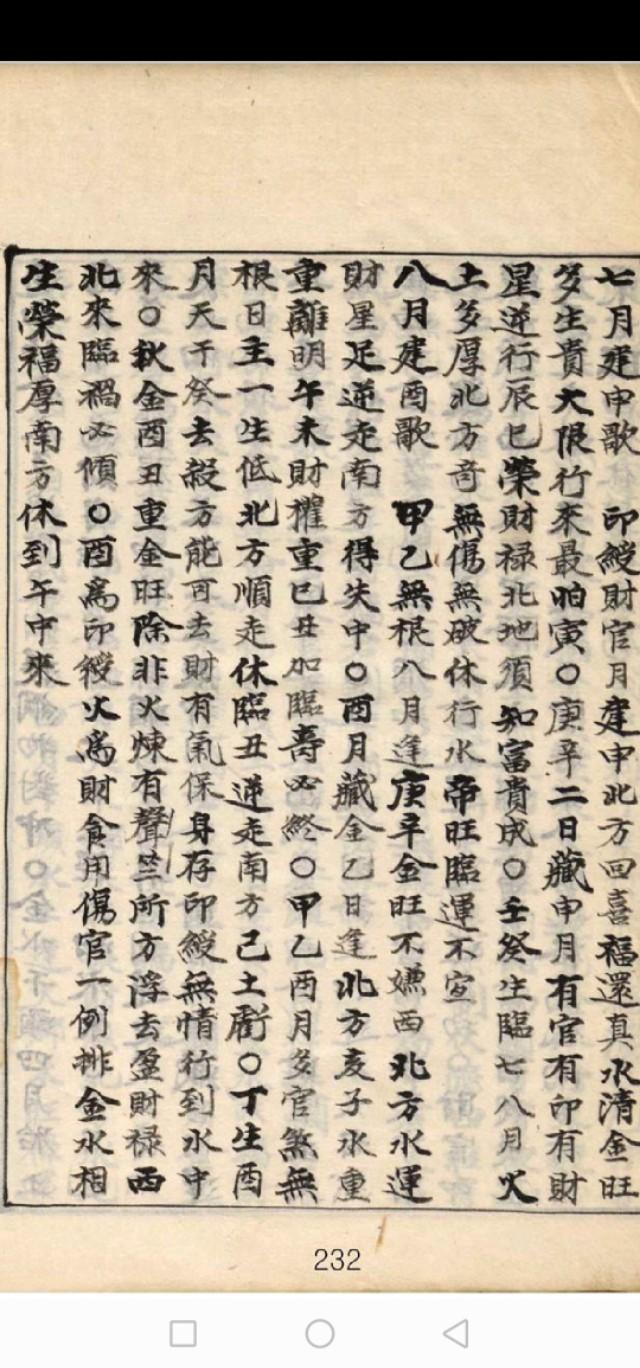 七月建申歌　印綬財官月建申北方回喜福還真水清金旺
多生貴大限行來最怕寅〇庚辛二日藏申月有官有印有財
星逆行辰巳榮財祿北地須知富貴成〇壬癸生臨七八月火
土多厚北方奇無傷無破休行水帝旺臨運不宣
八月建酉歌　甲乙無根八月逢庚辛金旺不嫌西北方水運
財星足逆走南方得失中〇酉月藏金乙日逢北方亥子水重
重離明午未財權重巳丑加臨壽必終〇甲乙酉月多官煞無
根日主一生低北方順走休臨丑逆走南方己土虧〇丁生酉
月天干癸去殺方能可去財有氣保身存印綬無情行到水中
來〇秋金酉丑重金旺除非火煉有聲竺所方浮去盈財祿西
北來臨禍必傾〇酉為印綬火為財食用傷官一例排金水相
生榮福厚南方休到午中來
232